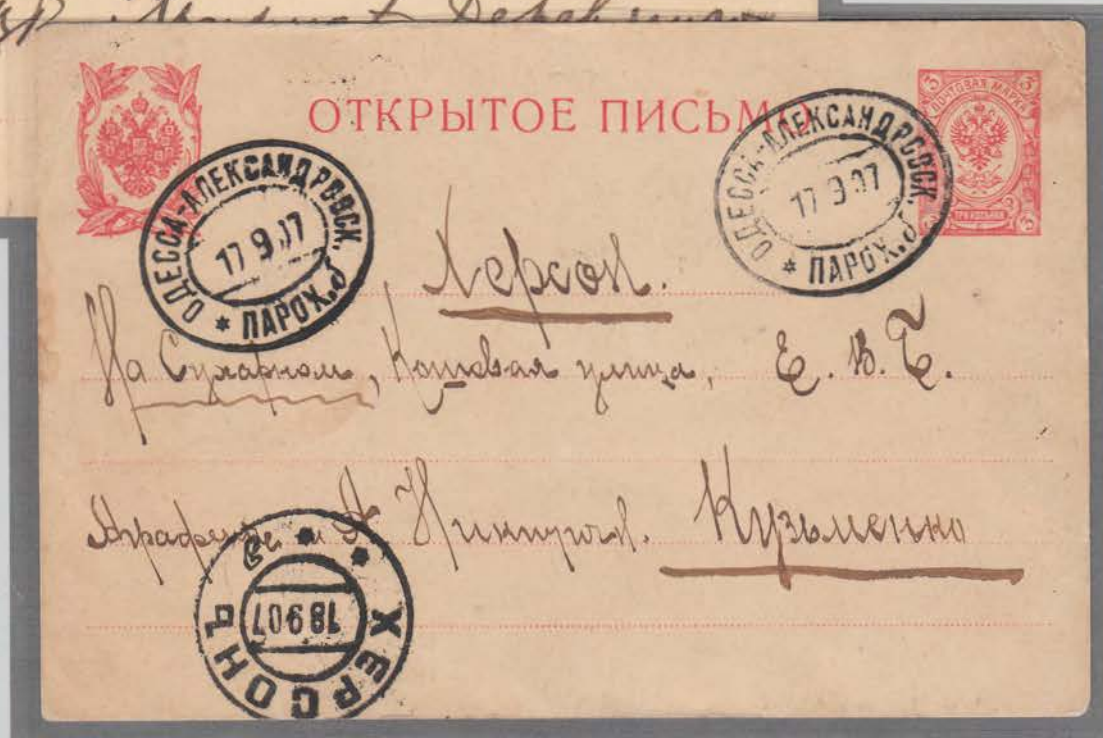 ОТКРЫТОЕ ПИСЬМО
ПОЧТОВАЯ МАРКА
3 3
3 ТРИ КОПѢЙКИ 3
ОДЕССА-АЛЕКСАНДРОВСК. ПАРОХ.
17 9 07
ОДЕССА-АЛЕКСАНДРОВСК. ПАРОХ.
17 9 07
Херсон.
На Сухарном, Кошевая улица, Е. В. Б.
Аграфене Никитичн. Кузьменко
ХЕРСОНЪ
18 9 07